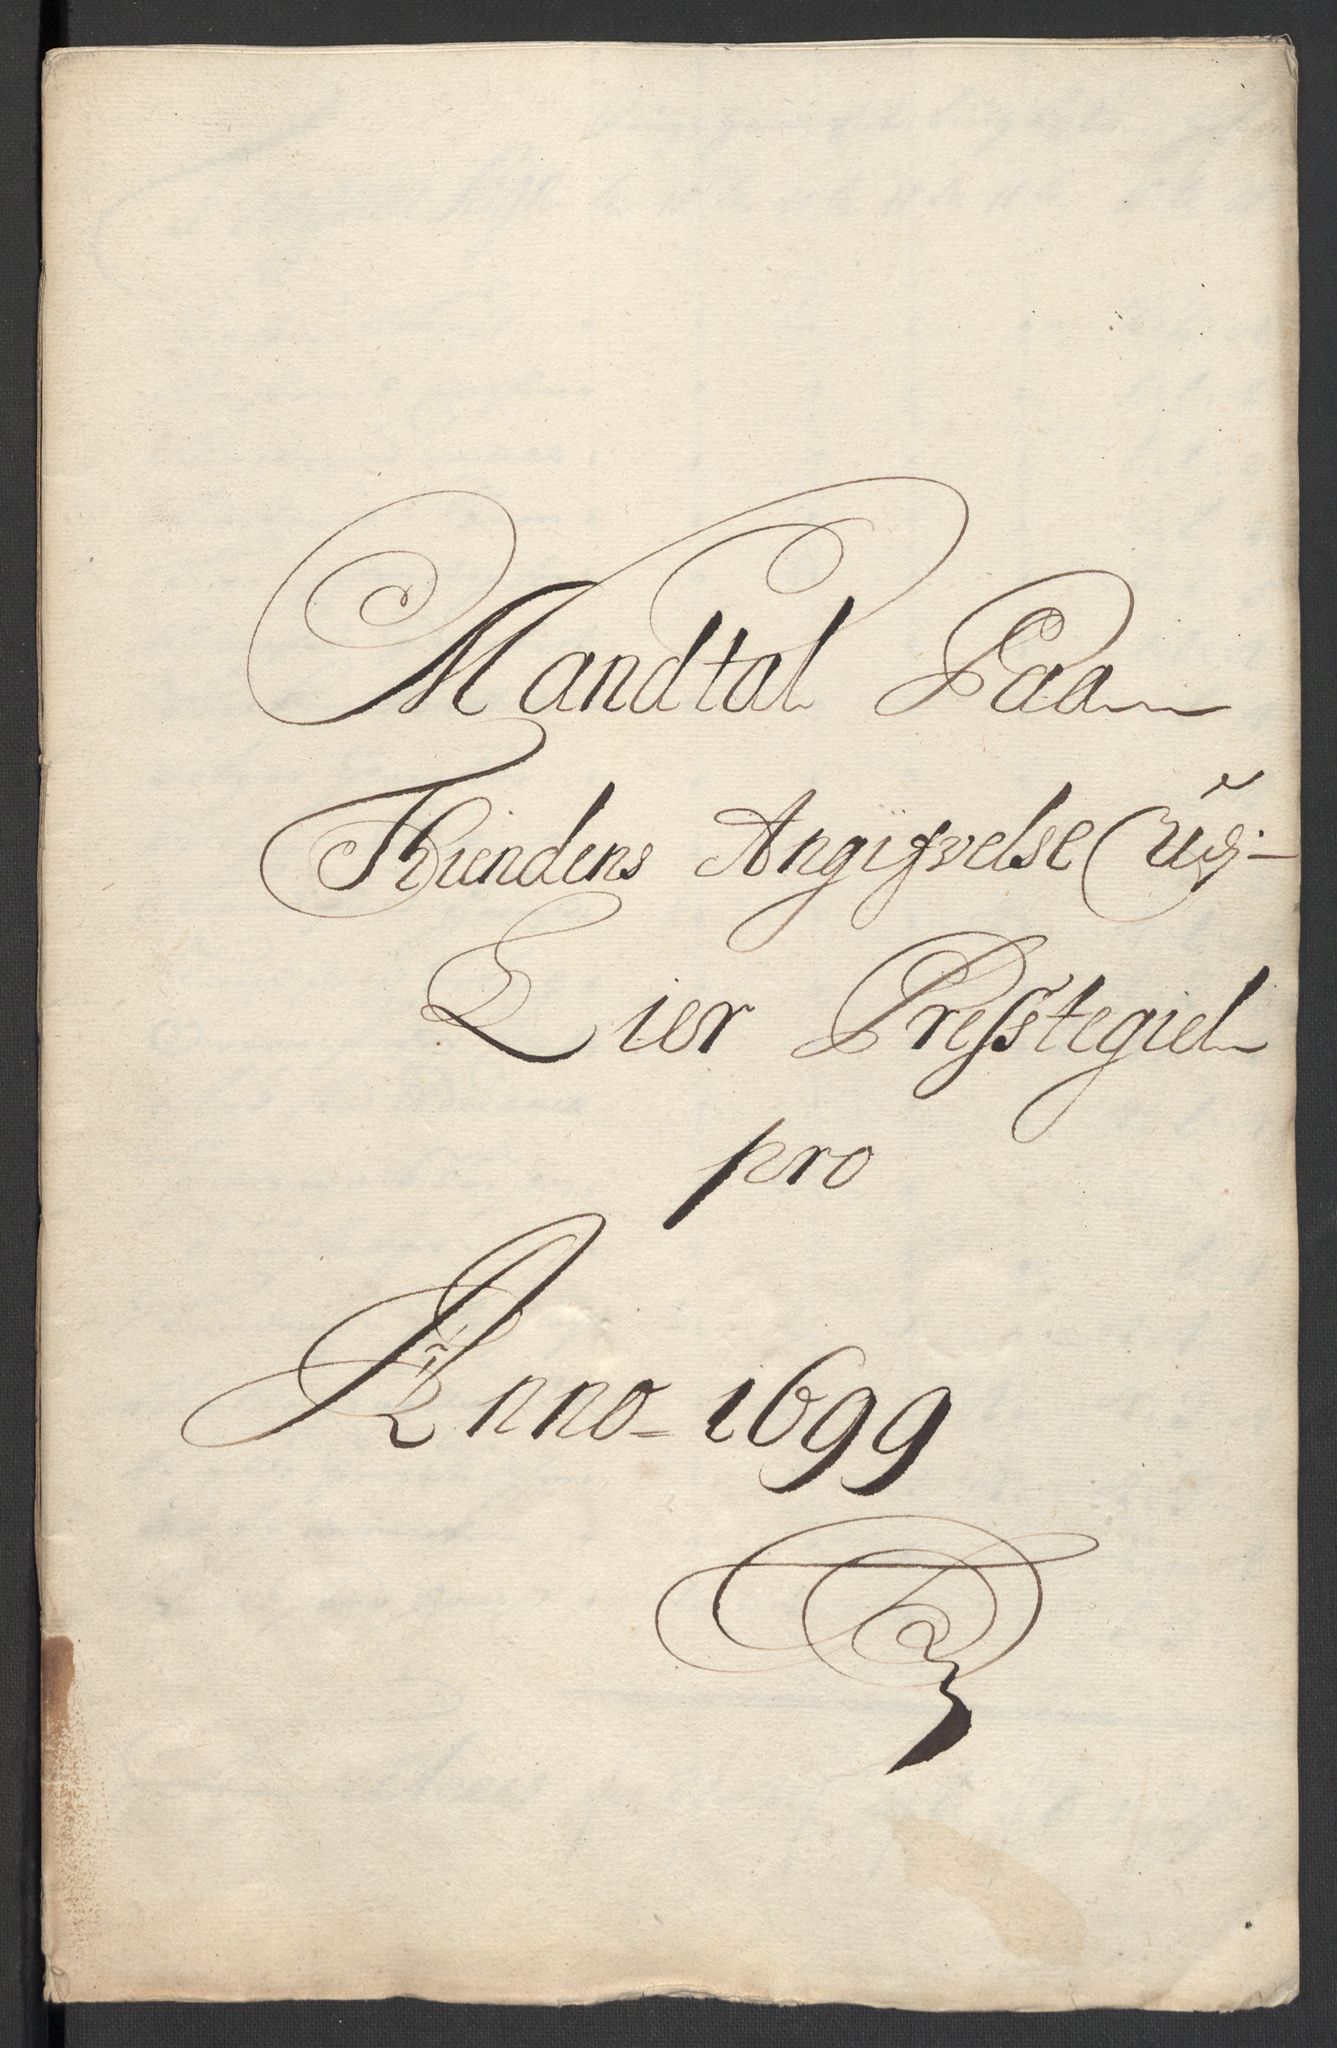 Mandtal Paa
Thiendens Angifvelse Udj
Lier Presstegiel
pro
Anno 1699